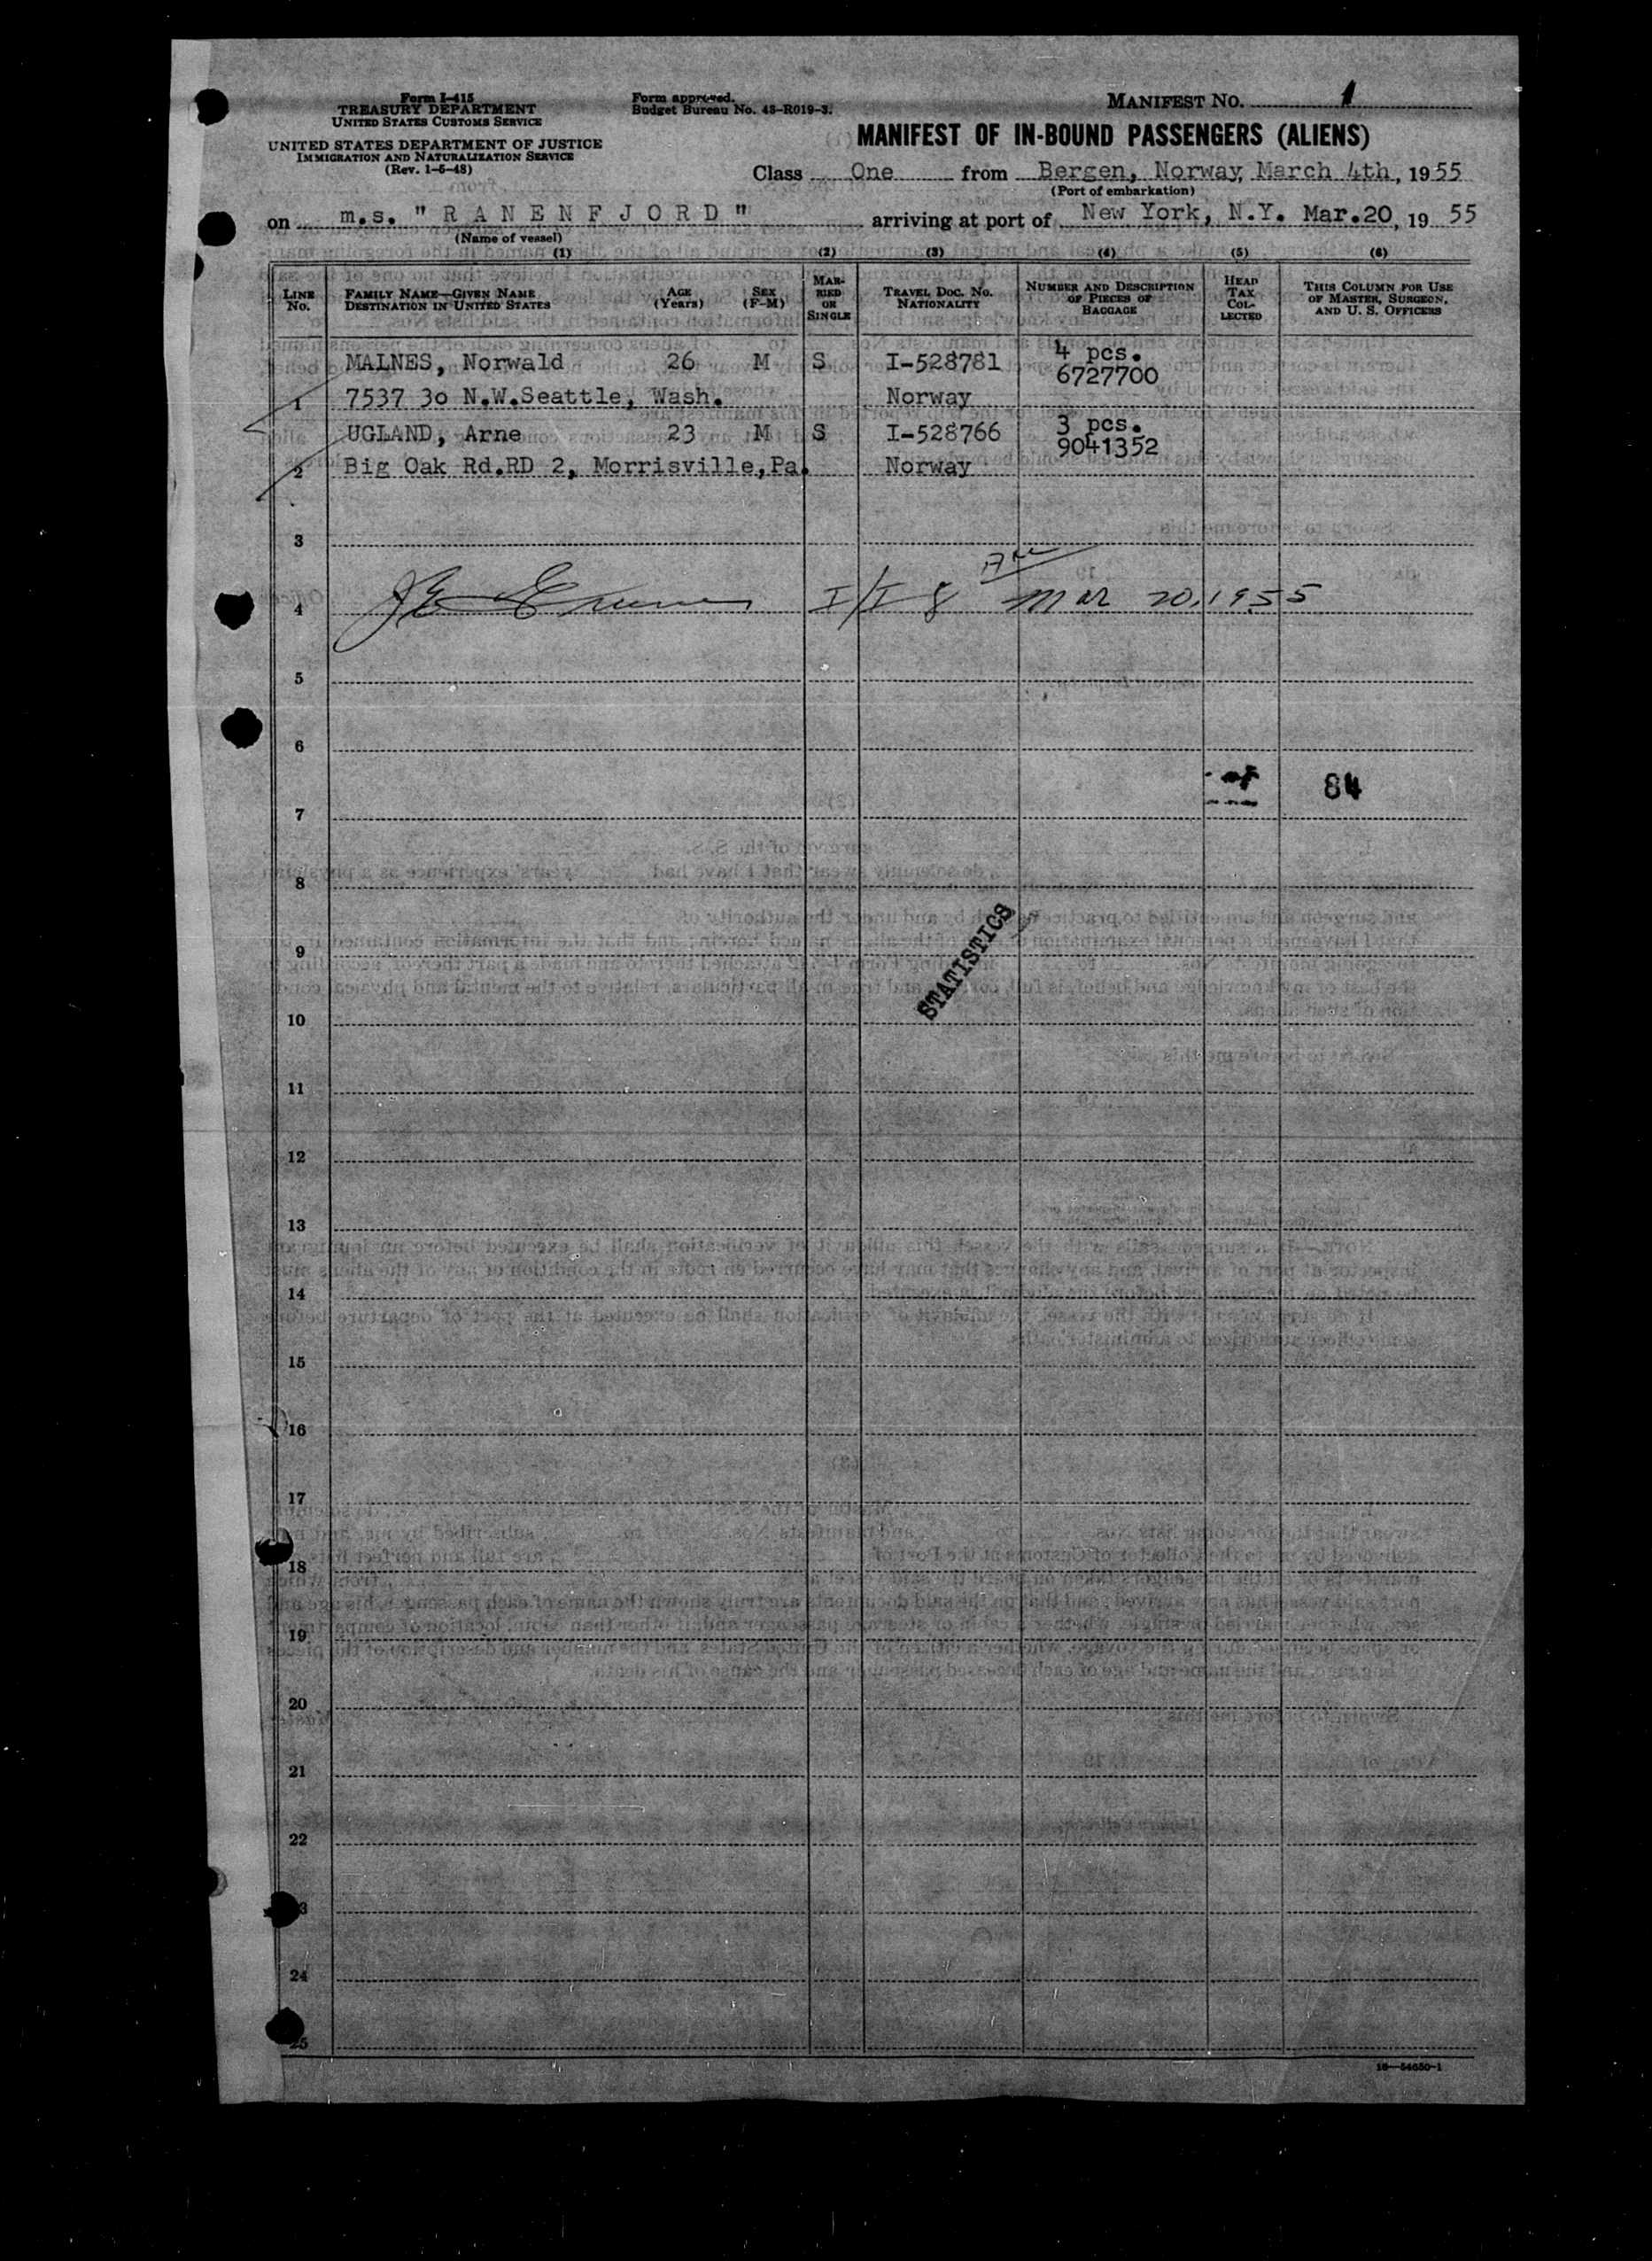 Form I-415
TREASURY DEPARTMENT
UNITED STATES CUSTOMS SERVICE
UNITED STATES DEPARTMENT OF JUSTICE
IMMIGRATION AND NATURALIZATION SERVICE
(Rev. 1-5-48)
Form approved.
Budget Bureau No. 43-R019-3.
MANIFEST NO. 1
MANIFEST OF IN-BOUND PASSENGERS (ALIENS)
Class One from Bergen, Norway, March 4th, 1955
(Port of embarkation)
on m.s. "RANENFJORD" arriving at port of New York, N.Y. Mar.20, 1955
(Name of vessel)
(1) (2) (3) (4) (5) (6)
LINE No. FAMILY NAME—GIVEN NAME DESTINATION IN UNITED STATES AGE (Years) SEX (F-M) MARRIED OR SINGLE TRAVEL DOC. NO. NATIONALITY NUMBER AND DESCRIPTION OF PIECES OF BAGGAGE HEAD TAX COLLECTED THIS COLUMN FOR USE OF MASTER, SURGEON, AND U. S. OFFICERS
MALNES, Norwald 26 M S I-528781 4 pcs. 6727700
1 7537 30 N.W.Seattle, Wash. Norway
UGLAND, Arne 23 M S I-528766 3 pcs. 9041352
2 Big Oak Rd.RD 2, Morrisville,Pa. Norway
3
4 I/I 8 Mar 20, 1955
5
6
84
7
8
STATISTICS
9
10
11
12
13
14
15
16
17
18
19
20
21
22
3
24
25
16—54650-1